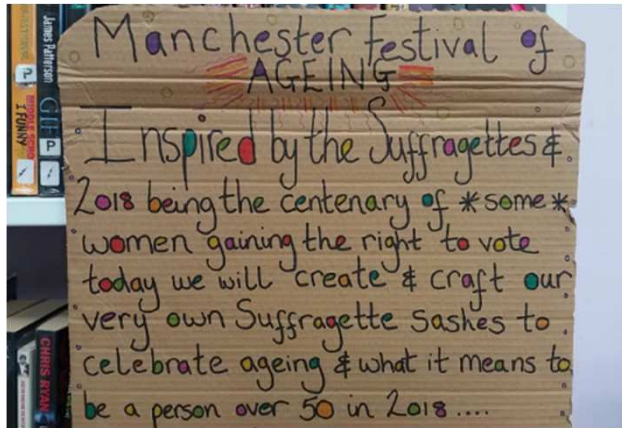 Manchester Festival of
AGEING
Inspired by the Suffragettes &
2018 being the centenary of *some*
women gaining the right to vote
today we will create & craft our
very own Suffragette Sashes to
celebrate ageing & what it means to
be a person over 50 in 2018....
James Patterson
I FUNNY
P
P
CHRIS RYAN